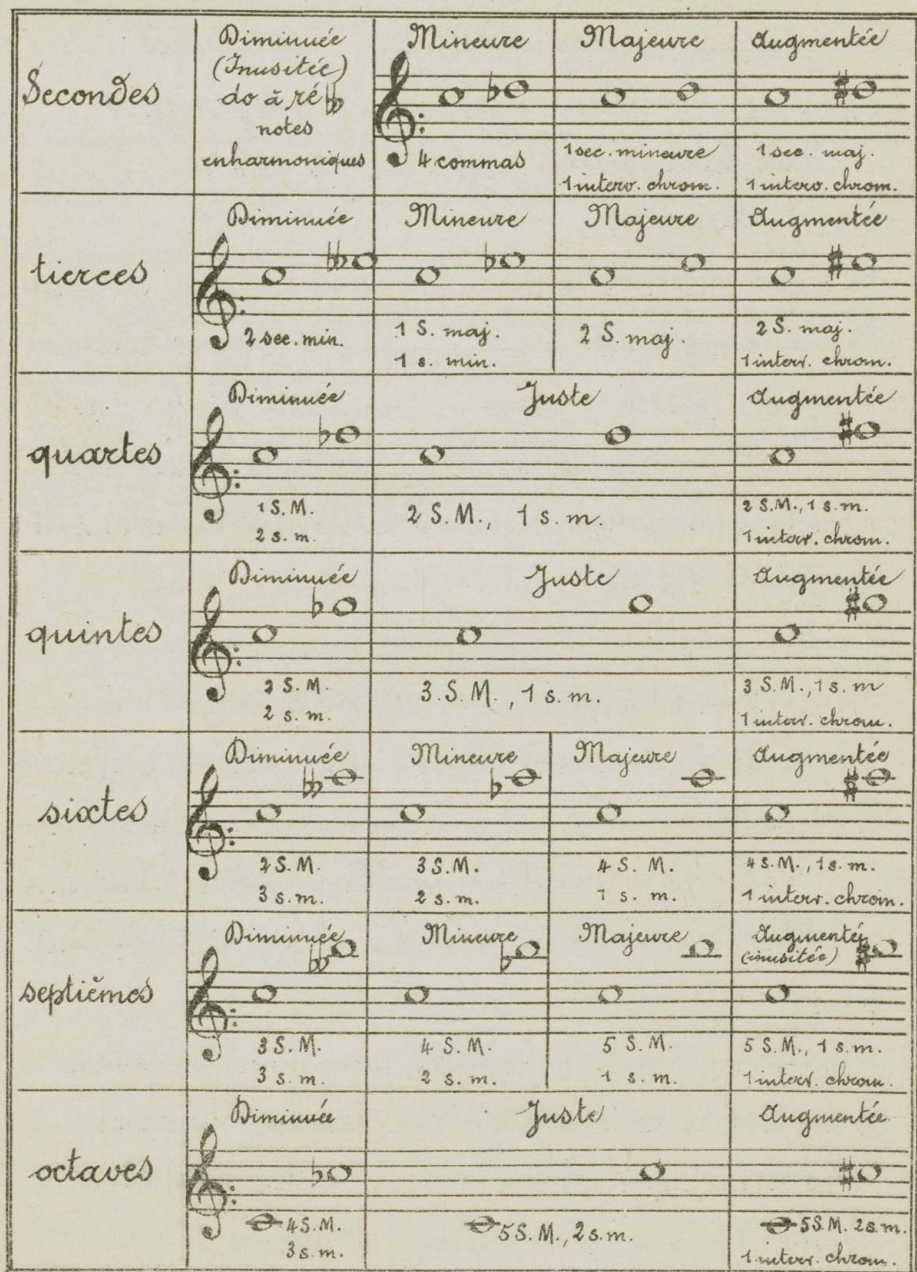 Secondes
Diminuée
(Inusitée)
do à ré♭♭
notes
enharmoniques
Mineure
4 commas
Majeure
1 sec. mineure
1 interv. chrom.
Augmentée
1 sec. maj.
1 interv. chrom.
tierces
Diminuée
2 sec. min.
Mineure
1 S. maj.
1 s. min.
Majeure
2 S. maj.
Augmentée
2 S. maj.
1 interv. chrom.
quartes
Diminuée
1 S. M.
2 s. m.
Juste
2 S. M., 1 s. m.
Augmentée
2 S. M., 1 s. m.
1 interv. chrom.
quintes
Diminuée
2 S. M.
2 s. m.
Juste
3. S. M., 1 s. m.
Augmentée
3 S. M., 1 s. m
1 interv. chrom.
sixtes
Diminuée
2 S. M.
3 s. m.
Mineure
3 S. M.
2 s. m.
Majeure
4 S. M.
1 s. m.
Augmentée
4 S. M., 1 s. m.
1 interv. chrom.
septièmes
Diminuée
3 S. M.
3 s. m.
Mineure
4 S. M.
2 s. m.
Majeure
5 S. M.
1 s. m.
Augmentée
(inusitée)
5 S. M., 1 s. m.
1 interv. chrom.
octaves
Diminuée
4 S. M.
3 s. m.
Juste
5 S. M., 2 s. m.
Augmentée
5 S. M. 2 s. m.
1 interv. chrom.